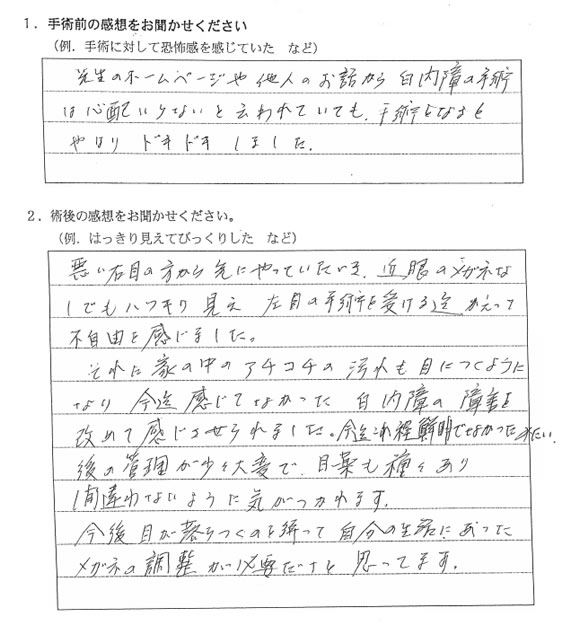 1．手術前の感想をお聞かせください
（例．手術に対して恐怖感を感じていた　など）
先生のホームページや他人のお話から白内障の手術
は心配いらないと云われていても、手術となると
やはり ドキドキしました。
2．術後の感想をお聞かせください。
（例．はっきり見えてびっくりした　など）
悪い右目の方から先にやっていたゞき、近眼のメガネな
しでもハッキリ見え 左目の手術を受ける迄 かえって
不自由を感じました。
それに家の中のアチコチの汚れも目につくように
なり 今迄感じてなかった 白内障の障害を
改めて感じさせられました。今迄これ程鮮明でなかったみたい、
後の管理が少々大変で、目薬も種々あり
間違わないように気がつかれます。
今後目が落ちつくのを待って自分の生活にあった
メガネの調整が必要だナと思ってます。